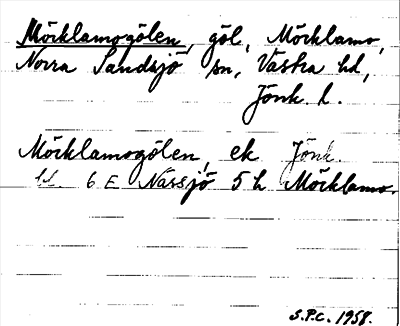 Möcklamogölen, göl, Möcklamo,
Norra Sandsjö sn, Västra hd,
Jönk. l.
Möcklamogölen, ek Jönk.
bl. 6 E Nässjö 5 h Möcklamo.
S.P.C. 1958.